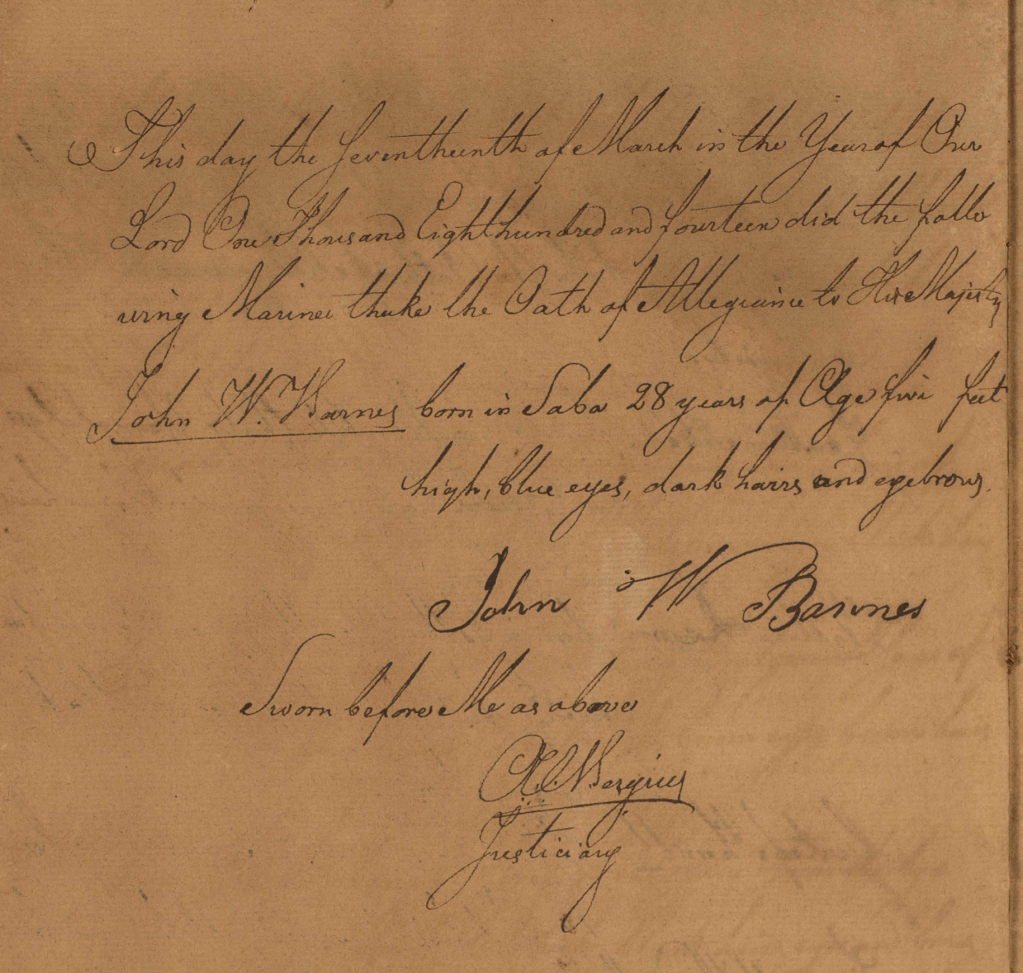 This day the Seventheenth of March in the Year of Our
Lord One Thousand Eighthundred and fourteen did the follo
wing Mariner thake the Oath of Allegiance to His Majesty
John W. Barnes born in Saba 28 years of Age five feet
high, blue eyes, dark hairs and eyebrows.
John W Barnes
Sworn before Me as above
Bergius
Justiciary